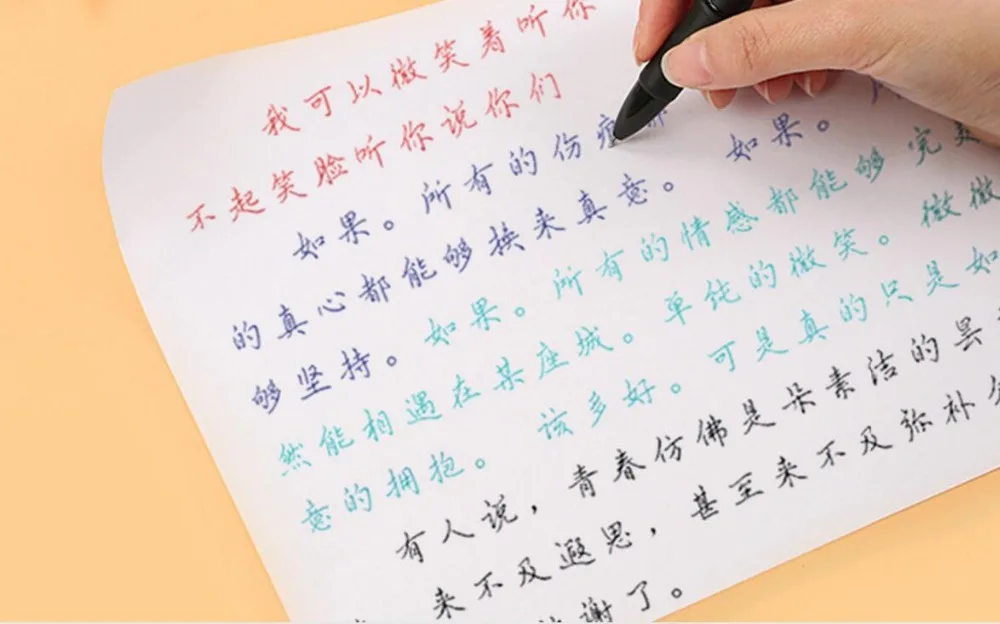 我可以微笑着听你
不起笑脸听你说你们
如果。所有的伤痕都 如果。
的真心都能够换来真意。
够坚持。如果。所有的情感都能够完美
然能相遇在某座城。单纯的微笑。微微
意的拥抱。 该多好。可是真的只是如
有人说，青春仿佛是朵素洁的昙
来不及遐思，甚至来不及弥补
谢了。